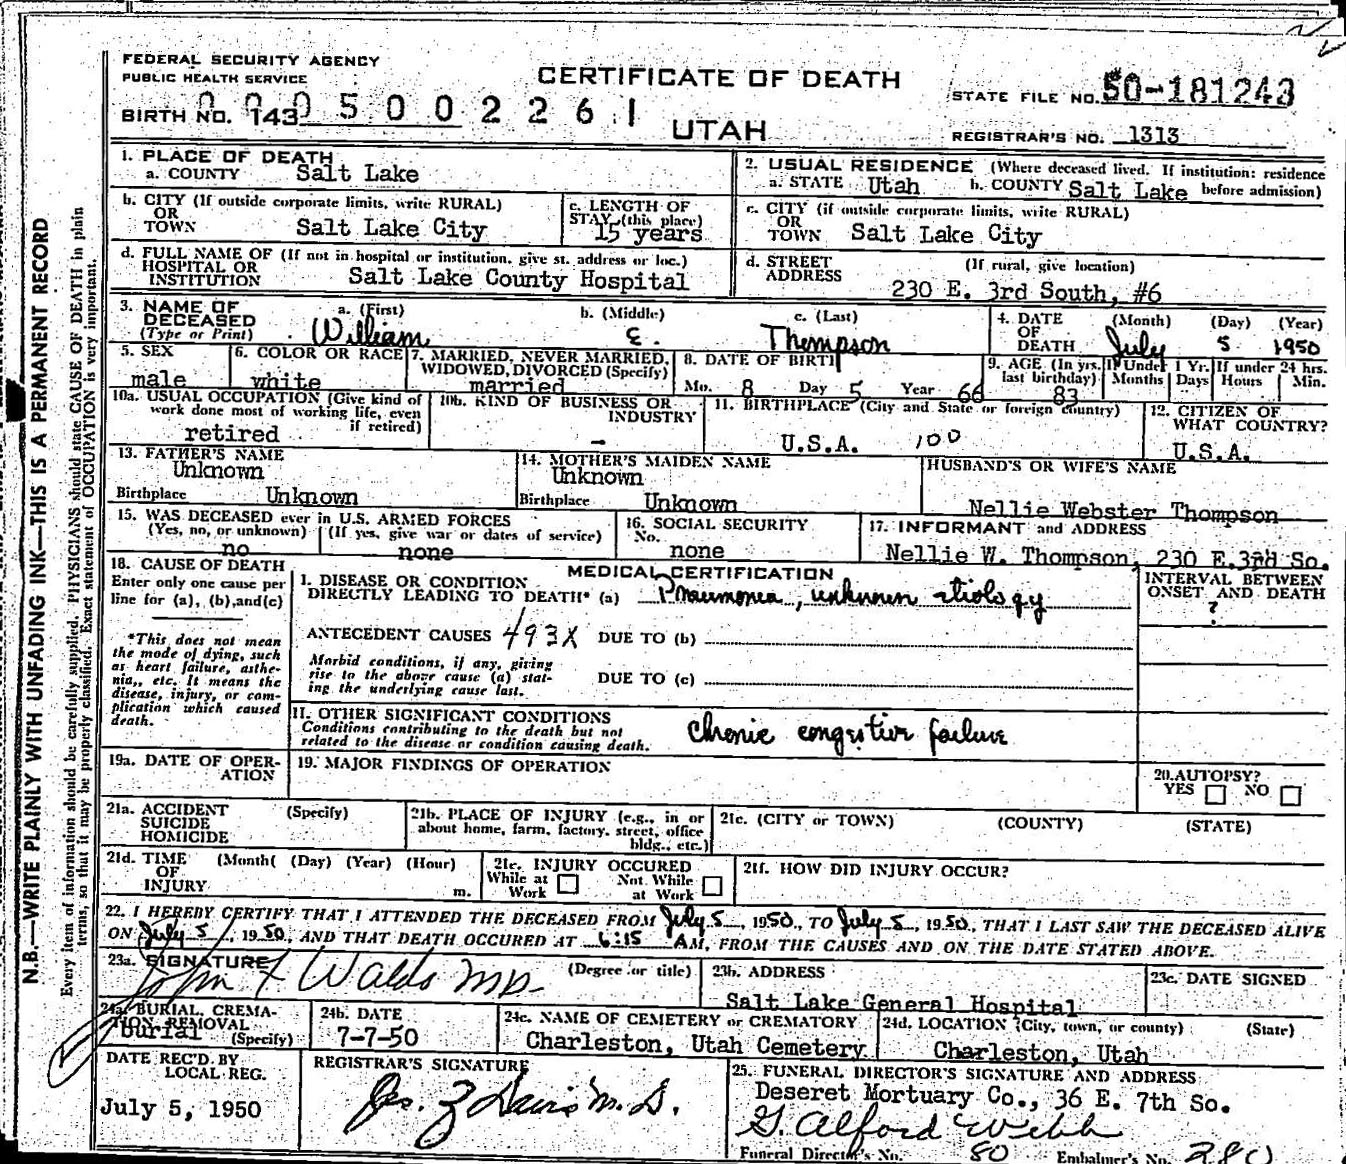 FEDERAL SECURITY AGENCY
PUBLIC HEALTH SERVICE
CERTIFICATE OF DEATH
STATE FILE NO. 50-181243
BIRTH NO. 143 0005002261
UTAH
REGISTRAR'S NO. 1313
1. PLACE OF DEATH
a. COUNTY Salt Lake
2. USUAL RESIDENCE (Where deceased lived. If institution: residence
a. STATE Utah b. COUNTY Salt Lake before admission)
b. CITY (If outside corporate limits, write RURAL)
OR
TOWN Salt Lake City
c. LENGTH OF
STAY (this place)
15 years
c. CITY (if outside corporate limits, write RURAL)
OR
TOWN Salt Lake City
d. FULL NAME OF (If not in hospital or institution, give st. address or loc.)
HOSPITAL OR
INSTITUTION Salt Lake County Hospital
d. STREET (If rural, give location)
ADDRESS
230 E. 3rd South, #6
3. NAME OF
DECEASED
(Type or Print)
a. (First) b. (Middle) c. (Last)
William E. Thompson
4. DATE (Month) (Day) (Year)
OF
DEATH July 5 1950
5. SEX
male
6. COLOR OR RACE
white
7. MARRIED, NEVER MARRIED,
WIDOWED, DIVORCED (Specify)
married
8. DATE OF BIRTH
Mo. 8 Day 5 Year 66
9. AGE (In yrs.
last birthday)
83
If Under 1 Yr.
Months Days
If under 24 hrs.
Hours Min.
10a. USUAL OCCUPATION (Give kind of
work done most of working life, even
if retired)
retired
10b. KIND OF BUSINESS OR
INDUSTRY
-
11. BIRTHPLACE (City and State or foreign country)
U.S.A. 100
12. CITIZEN OF
WHAT COUNTRY?
U.S.A.
13. FATHER'S NAME
Unknown
Birthplace Unknown
14. MOTHER'S MAIDEN NAME
Unknown
Birthplace Unknown
HUSBAND'S OR WIFE'S NAME
Nellie Webster Thompson
15. WAS DECEASED ever in U.S. ARMED FORCES
(Yes, no, or unknown) (If yes, give war or dates of service)
no none
16. SOCIAL SECURITY
No.
none
17. INFORMANT and ADDRESS
Nellie W. Thompson, 230 E.3rd So.
18. CAUSE OF DEATH
Enter only one cause per
line for (a), (b), and (c)
*This does not mean
the mode of dying, such
as heart failure, asthe-
nia,, etc. It means the
disease, injury, or com-
plication which caused
death.
MEDICAL CERTIFICATION
1. DISEASE OR CONDITION
DIRECTLY LEADING TO DEATH* (a) Pneumonia, unknown etiology
INTERVAL BETWEEN
ONSET AND DEATH
?
ANTECEDENT CAUSES 493X DUE TO (b)
Morbid conditions, if any, giving
rise to the above cause (a) stat-
ing the underlying cause last.
DUE TO (c)
11. OTHER SIGNIFICANT CONDITIONS
Conditions contributing to the death but not
related to the disease or condition causing death.
Chronic congestive failure
19a. DATE OF OPER-
ATION
19. MAJOR FINDINGS OF OPERATION
20. AUTOPSY?
YES NO
21a. ACCIDENT (Specify)
SUICIDE
HOMICIDE
21b. PLACE OF INJURY (e.g., in or
about home, farm, factory, street, office
bldg., etc.)
21c. (CITY or TOWN) (COUNTY) (STATE)
21d. TIME (Month( (Day) (Year) (Hour)
OF
INJURY m.
21e. INJURY OCCURED
While at Work Not While at Work
21f. HOW DID INJURY OCCUR?
22. I HEREBY CERTIFY THAT I ATTENDED THE DECEASED FROM July 5, 1950, TO July 5, 1950, THAT I LAST SAW THE DECEASED ALIVE
ON July 5, 1950, AND THAT DEATH OCCURED AT 6:15 AM, FROM THE CAUSES AND ON THE DATE STATED ABOVE.
23a. SIGNATURE (Degree or title)
John F Waldo MD.
23b. ADDRESS
Salt Lake General Hospital
23c. DATE SIGNED
24a. BURIAL, CREMA-
TION, REMOVAL
Burial (Specify)
24b. DATE
7-7-50
24c. NAME OF CEMETERY or CREMATORY
Charleston, Utah Cemetery
24d. LOCATION (City, town, or county) (State)
Charleston, Utah
DATE REC'D. BY
LOCAL REG.
July 5, 1950
REGISTRAR'S SIGNATURE
M.D.
25. FUNERAL DIRECTOR'S SIGNATURE AND ADDRESS
Deseret Mortuary Co., 36 E. 7th So.
G. Alford Webb
Funeral Director's No. 80 Embalmer's No. 280
N.B.—WRITE PLAINLY WITH UNFADING INK—THIS IS A PERMANENT RECORD
Every item of information should be carefully supplied. PHYSICIANS should state CAUSE OF DEATH in plain
terms, so that it may be properly classified. Exact statement of OCCUPATION is very important.